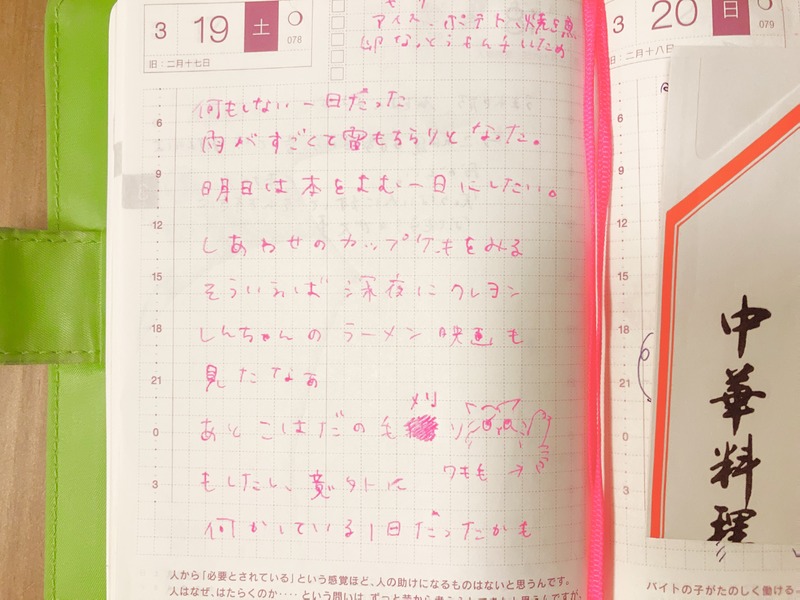 3 19 土 078
旧:二月十七日
アイス、ポテト、焼き魚
卵 なっとう もち チいため
6
9
12
15
18
21
0
3
何もしない一日だった
雨がすごくて雷もちらりとなった。
明日は本をよむ一日にしたい。
しあわせのカップケーキをみる
そういえば深夜にクレヨン
しんちゃんのラーメン映画も
見たなぁ
あとこはだの毛 メリ
もしたし、意外に ワキも →
何かしている1日だったかも
人から「必要とされている」という感覚ほど、人の助けになるものはないと思うんです。
人はなぜ、はたらくのか‥‥という問いは、ずっと昔から
3 20 日 079
旧:二月十八日
6
9
12
15
18
21
0
3
中華料理
バイトの子がたのしく働ける